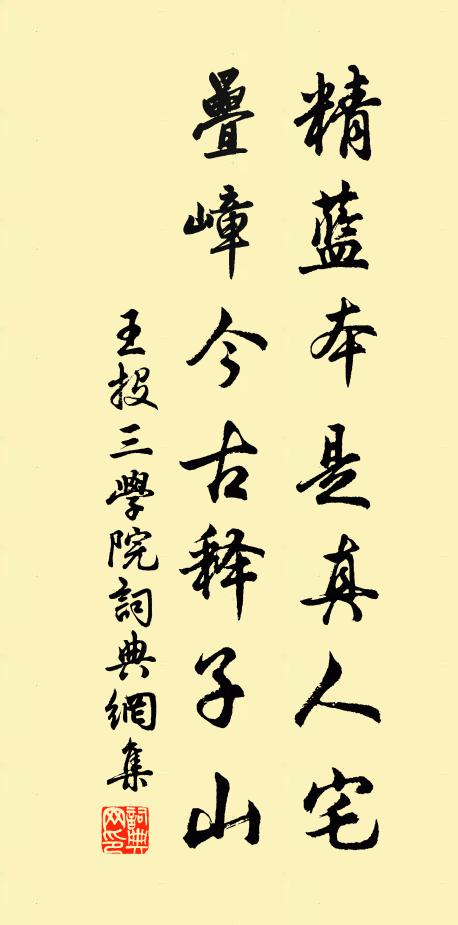 精藍本是真人宅
疊嶂今古释子山
王投三學院詞典網集
詞典网印